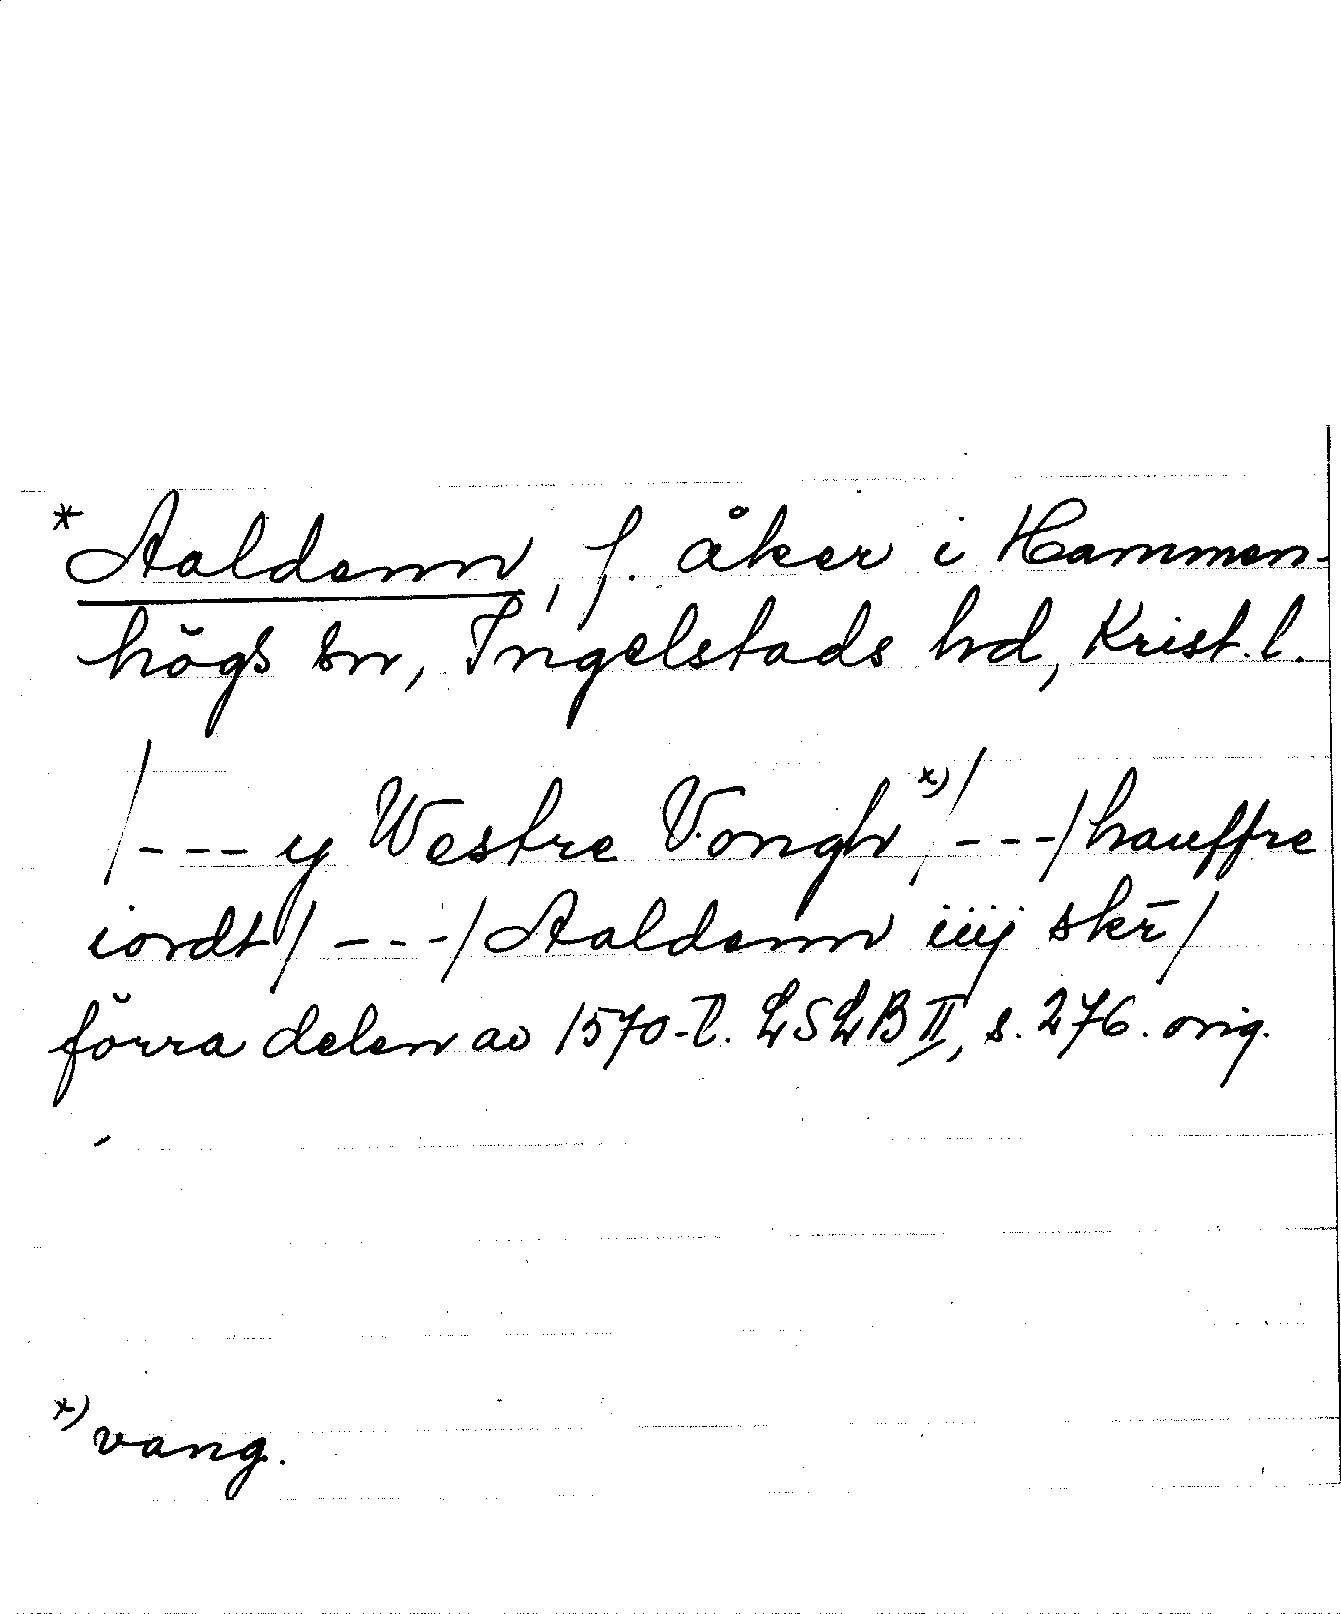 *Aaldenn, f. åker i Hammen-
högs sn, Ingelstads hd, Krist. l.
/--- y Westre Vongh x)/ ---/ hauffre
iordt/ ---/ Aaldenn iiij skr̄/
förra delen av 1570-t. LSLB II, s. 276. orig.
x) vang.